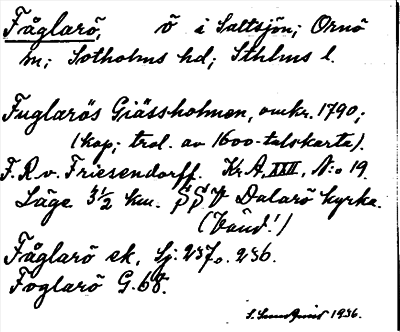 Fåglarö, ö i Saltsjön; Ornö
sn; Sotholms hd; Sthlms l.
Fuglarös Giässholmen, omkr. 1790;
(kop; trol. av 1600-talskarta).
F.R. v. Friesendorff. Kr.A. XXII, N:o 19.
Läge 3 1/2 km. SSV Dalarö kyrka.
(Vänd!)
Fåglarö ek. Sj. 237o. 236.
Foglarö G. 68.
1936.